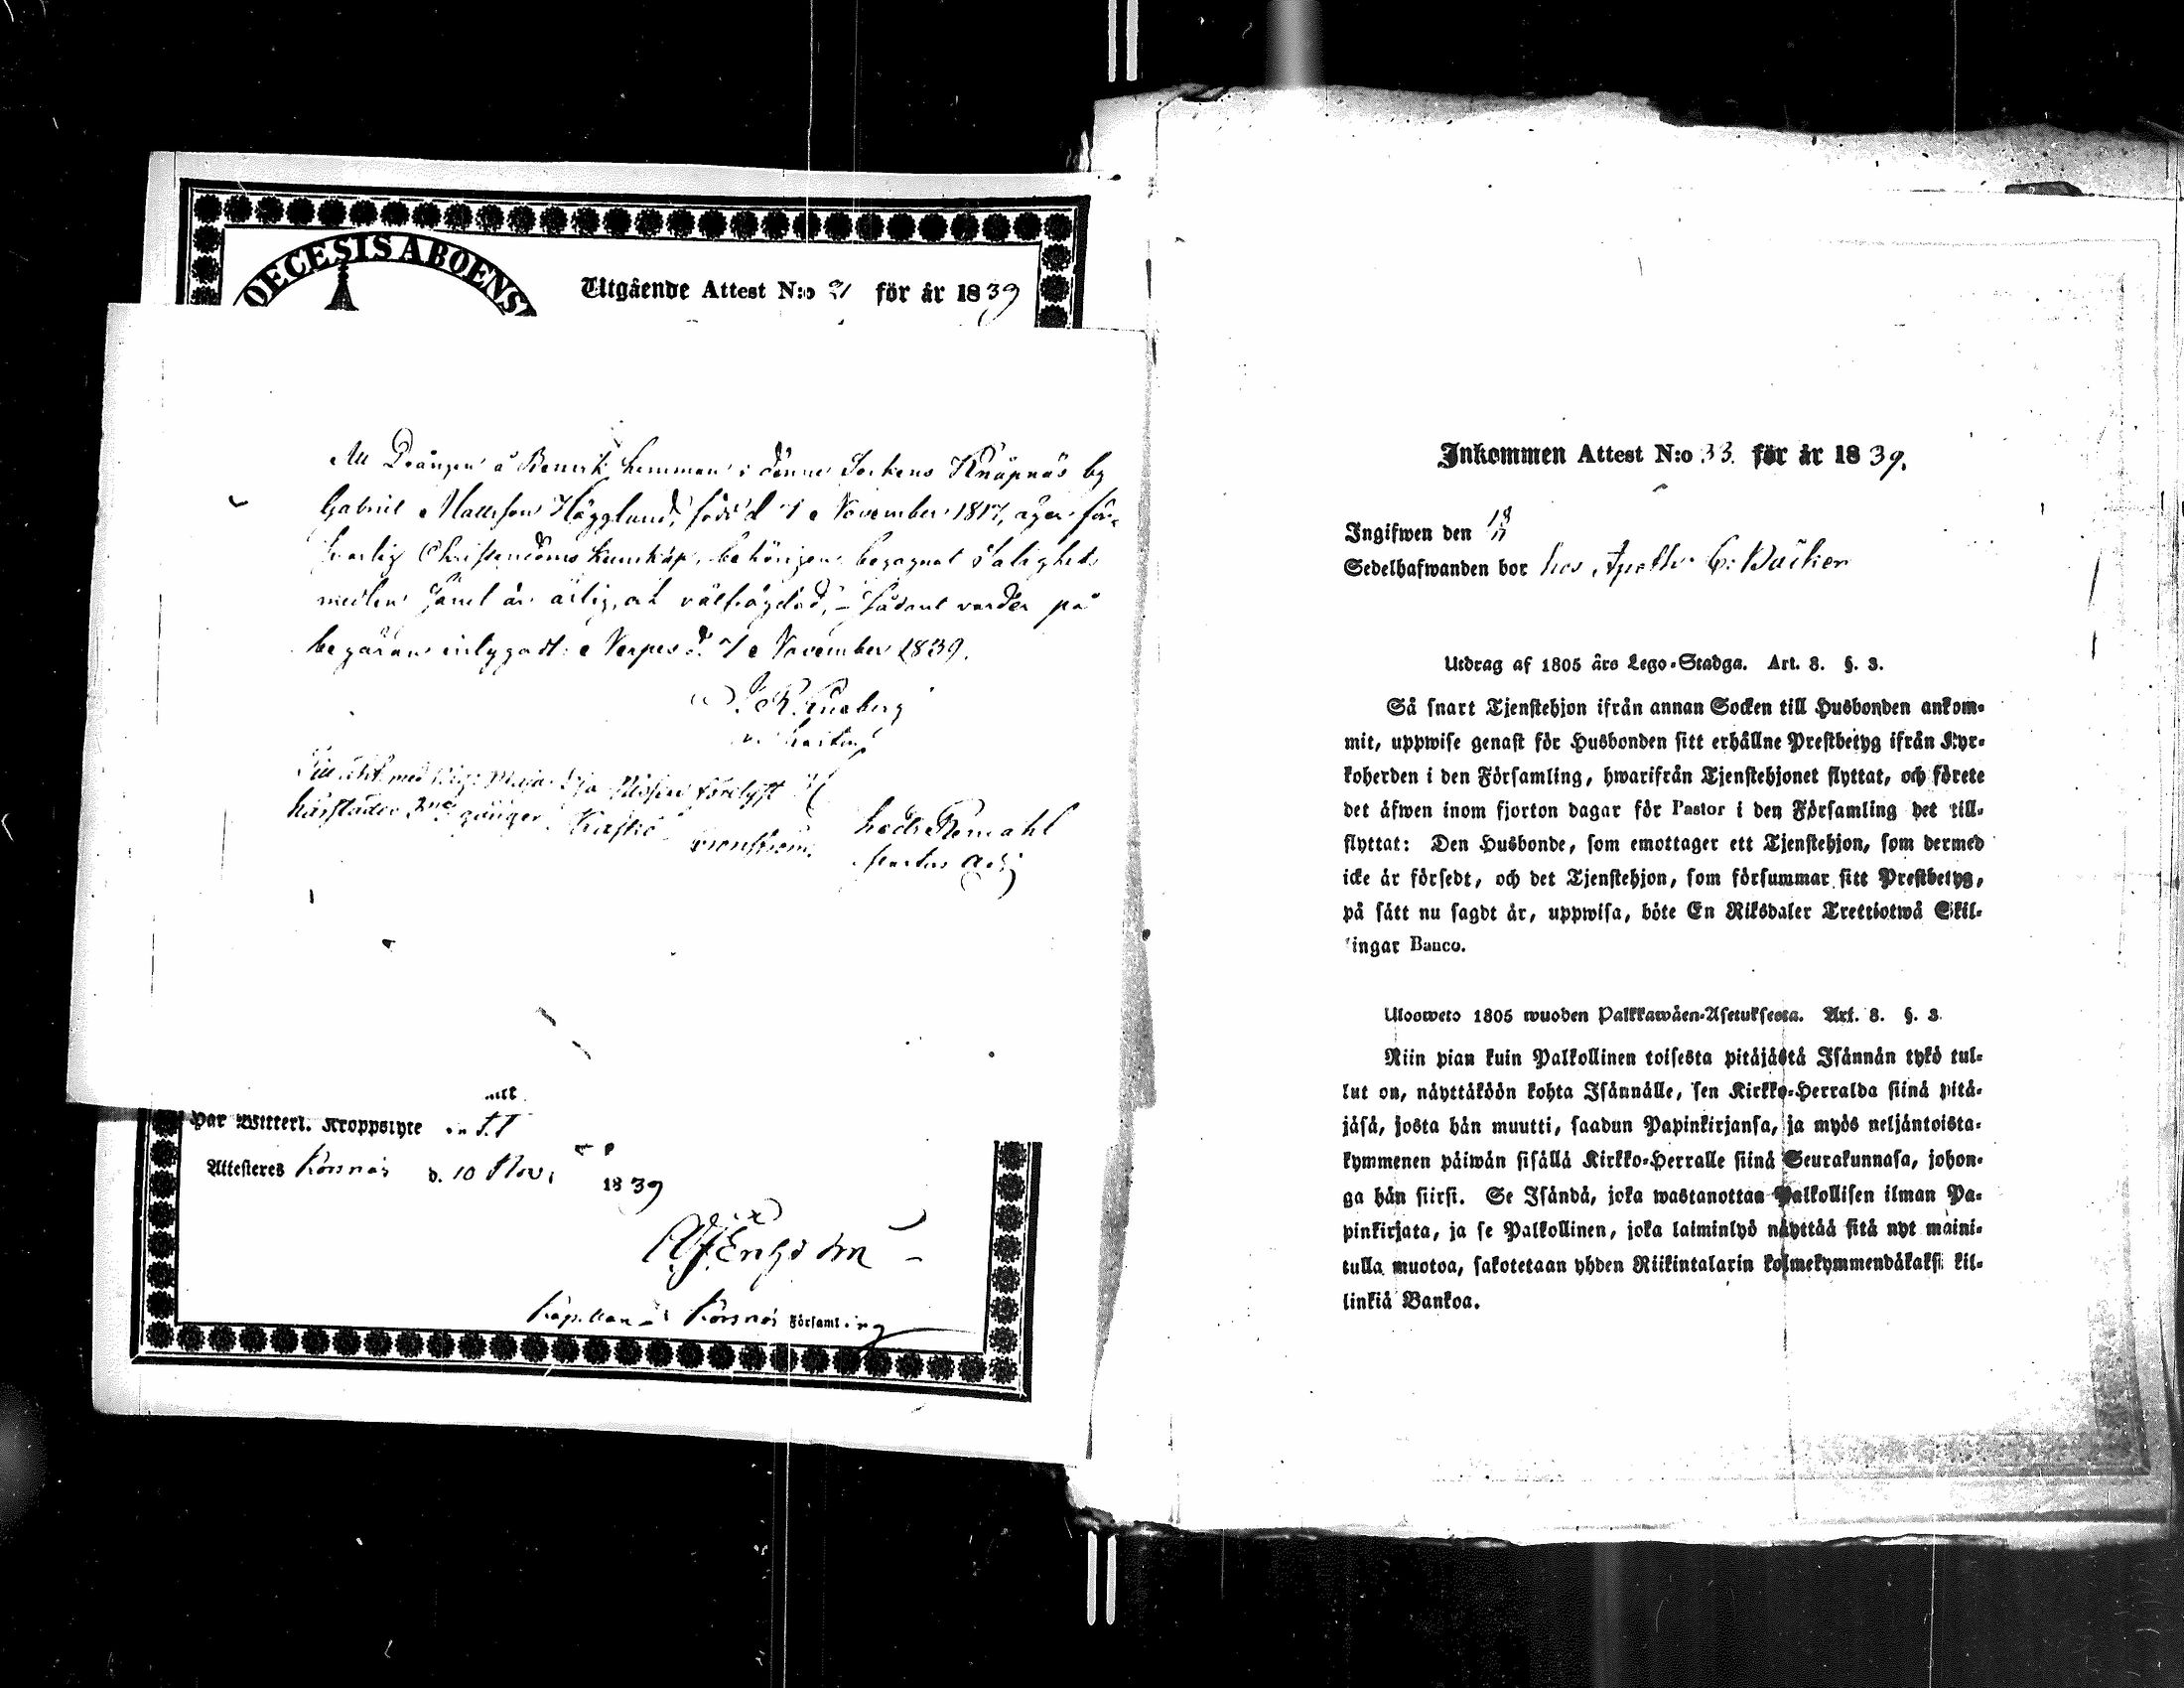 DECESIS ABOENS
Utgående Attest N:o 21 för år 1839
Att Drängen å Benvik hemman i denne Sockens Knåpnäs by
Gabriel Mattsson Hägglund, född d. 7 November 1817, äger för-
svarlig Christendoms kunskap, behörigen begagnat Salighets
medlen samt är ärlig, och välfrägdad, – Sådant varder på
begäran intygadt: Nerpes d. 7 November 1839.
J. R.
med Maja Lisa
härstädes 3ne gånger.
Har Witterl. Kroppslyte
Attesteres Korsnäs d. 10 Nov. 1839
Kapellan i Korsnäs Församling
Inkommen Attest N:o 33. för år 1839.
Ingifwen den
Sedelhafwanden bor hos
Utdrag af 1805 års Lego-Stadga. Art. 8. §. 3.
Så snart Tjenstehjon ifrån annan Socken till Husbonden ankom-
mit, uppwise genast för Husbonden sitt erhållne Prestbetyg ifrån Kyr-
koherden i den Församling, hwarifrån Tjenstehjonet flyttat, och förete
det äfwen inom fjorton dagar för Pastor i den Församling det till-
flyttat: Den Husbonde, som emottager ett Tjenstehjon, som dermed
icke är försedt, och det Tjenstehjon, som försummar sitt Prestbetyg,
på sätt nu sagdt är, uppwisa, böte En Riksdaler Trettiotwå Skil-
lingar Banco.
Ulosweto 1805 wuoden Palkkawäen-Asetuksesta. Art. 8. §. 3.
Niin pian kuin Palkollinen toisesta pitäjästä Isännän tykö tul-
lut on, näyttäköön kohta Isännälle, sen Kirkko-Herralda siinä pitä-
jäsä, josta hän muutti, saadun Papinkirjansa, ja myös neljäntoista-
kymmenen päiwän sisällä Kirkko-Herralle siinä Seurakunnasa, johon-
ga hän siirsi. Se Isändä, joka wastanottaa Palkollisen ilman Pa-
pinkirjata, ja se Palkollinen, joka laiminlyö näyttää sitä nyt maini-
tulla muotoa, sakotetaan yhden Riikintalarin kolmekymmendäkaksi kil-
linkiä Bankoa.